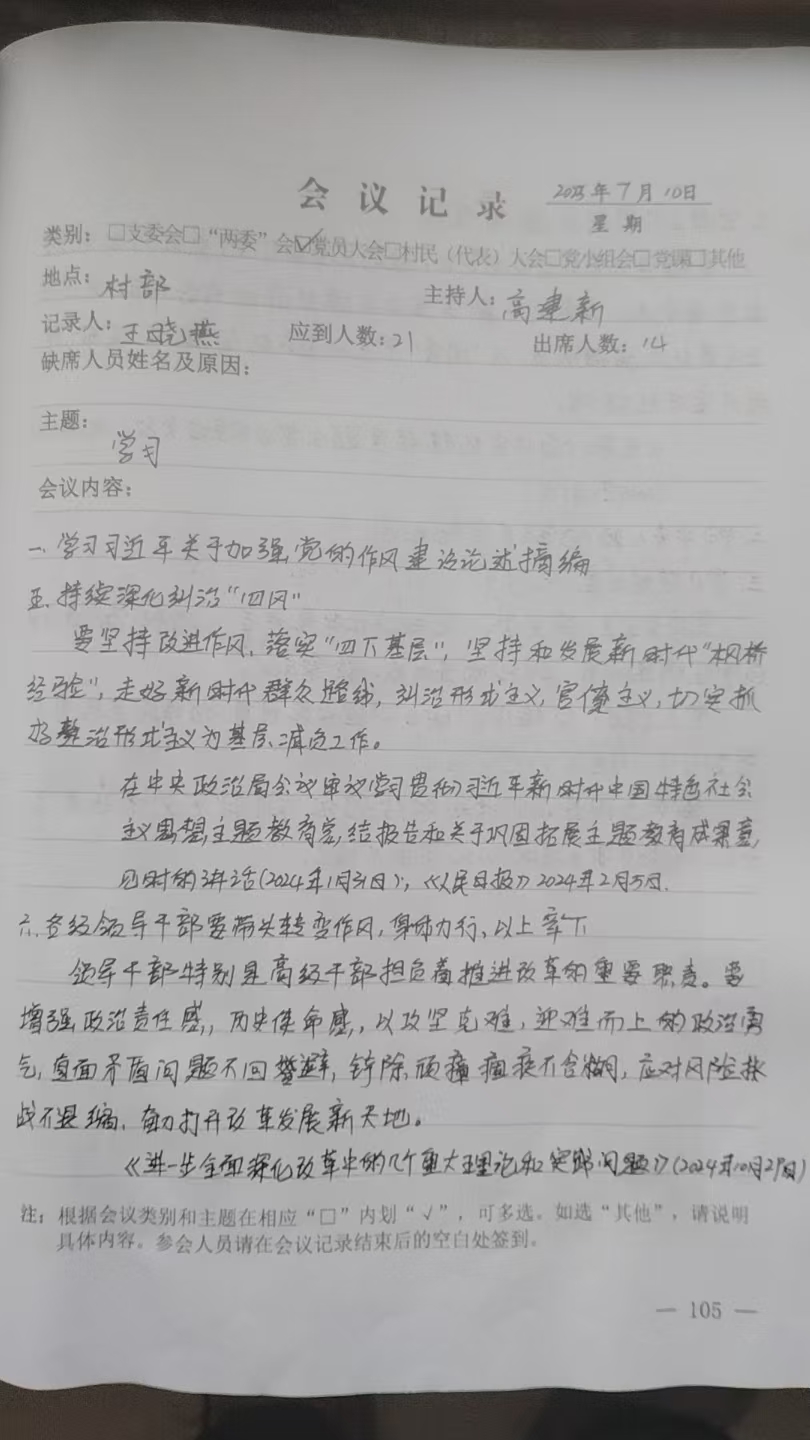 会议记录
2025年7月10日
星期
类别：□支委会□“两委”会☑党员大会□村民（代表）大会□党小组会□党课□其他
地点：村部
主持人：高建新
记录人：王晓燕 应到人数：21 出席人数：14
缺席人员姓名及原因：
主题：
学习
会议内容：
一、学习习近平关于加强党的作风建设论述摘编
五、持续深化纠治“四风”
要坚持改进作风、落实“四下基层”，坚持和发展新时代“枫桥
经验”，走好新时代群众路线，纠治形式主义，官僚主义，切实抓
好整治形式主义为基层减负工作。
在中央政治局会议审议学习贯彻习近平新时代中国特色社会
主义思想主题教育总结报告和关于巩固拓展主题教育成果意
见时的讲话（2024年1月31日），《人民日报》2024年2月5日.
六、各级领导干部要带头转变作风，身体力行、以上率下
领导干部特别是高级干部担负着推进改革的重要职责。要
增强政治责任感，历史使命感，以攻坚克难，迎难而上的政治勇
气，直面矛盾问题不回避，铲除顽瘴痼疾不含糊，应对风险挑
战不退缩，奋力打开改革发展新天地。
《进一步全面深化改革中的几个重大理论和实践问题》（2024年10月29日）
注：根据会议类别和主题在相应“□”内划“√”，可多选。如选“其他”，请说明
具体内容。参会人员请在会议记录结束后的空白处签到。
— 105 —